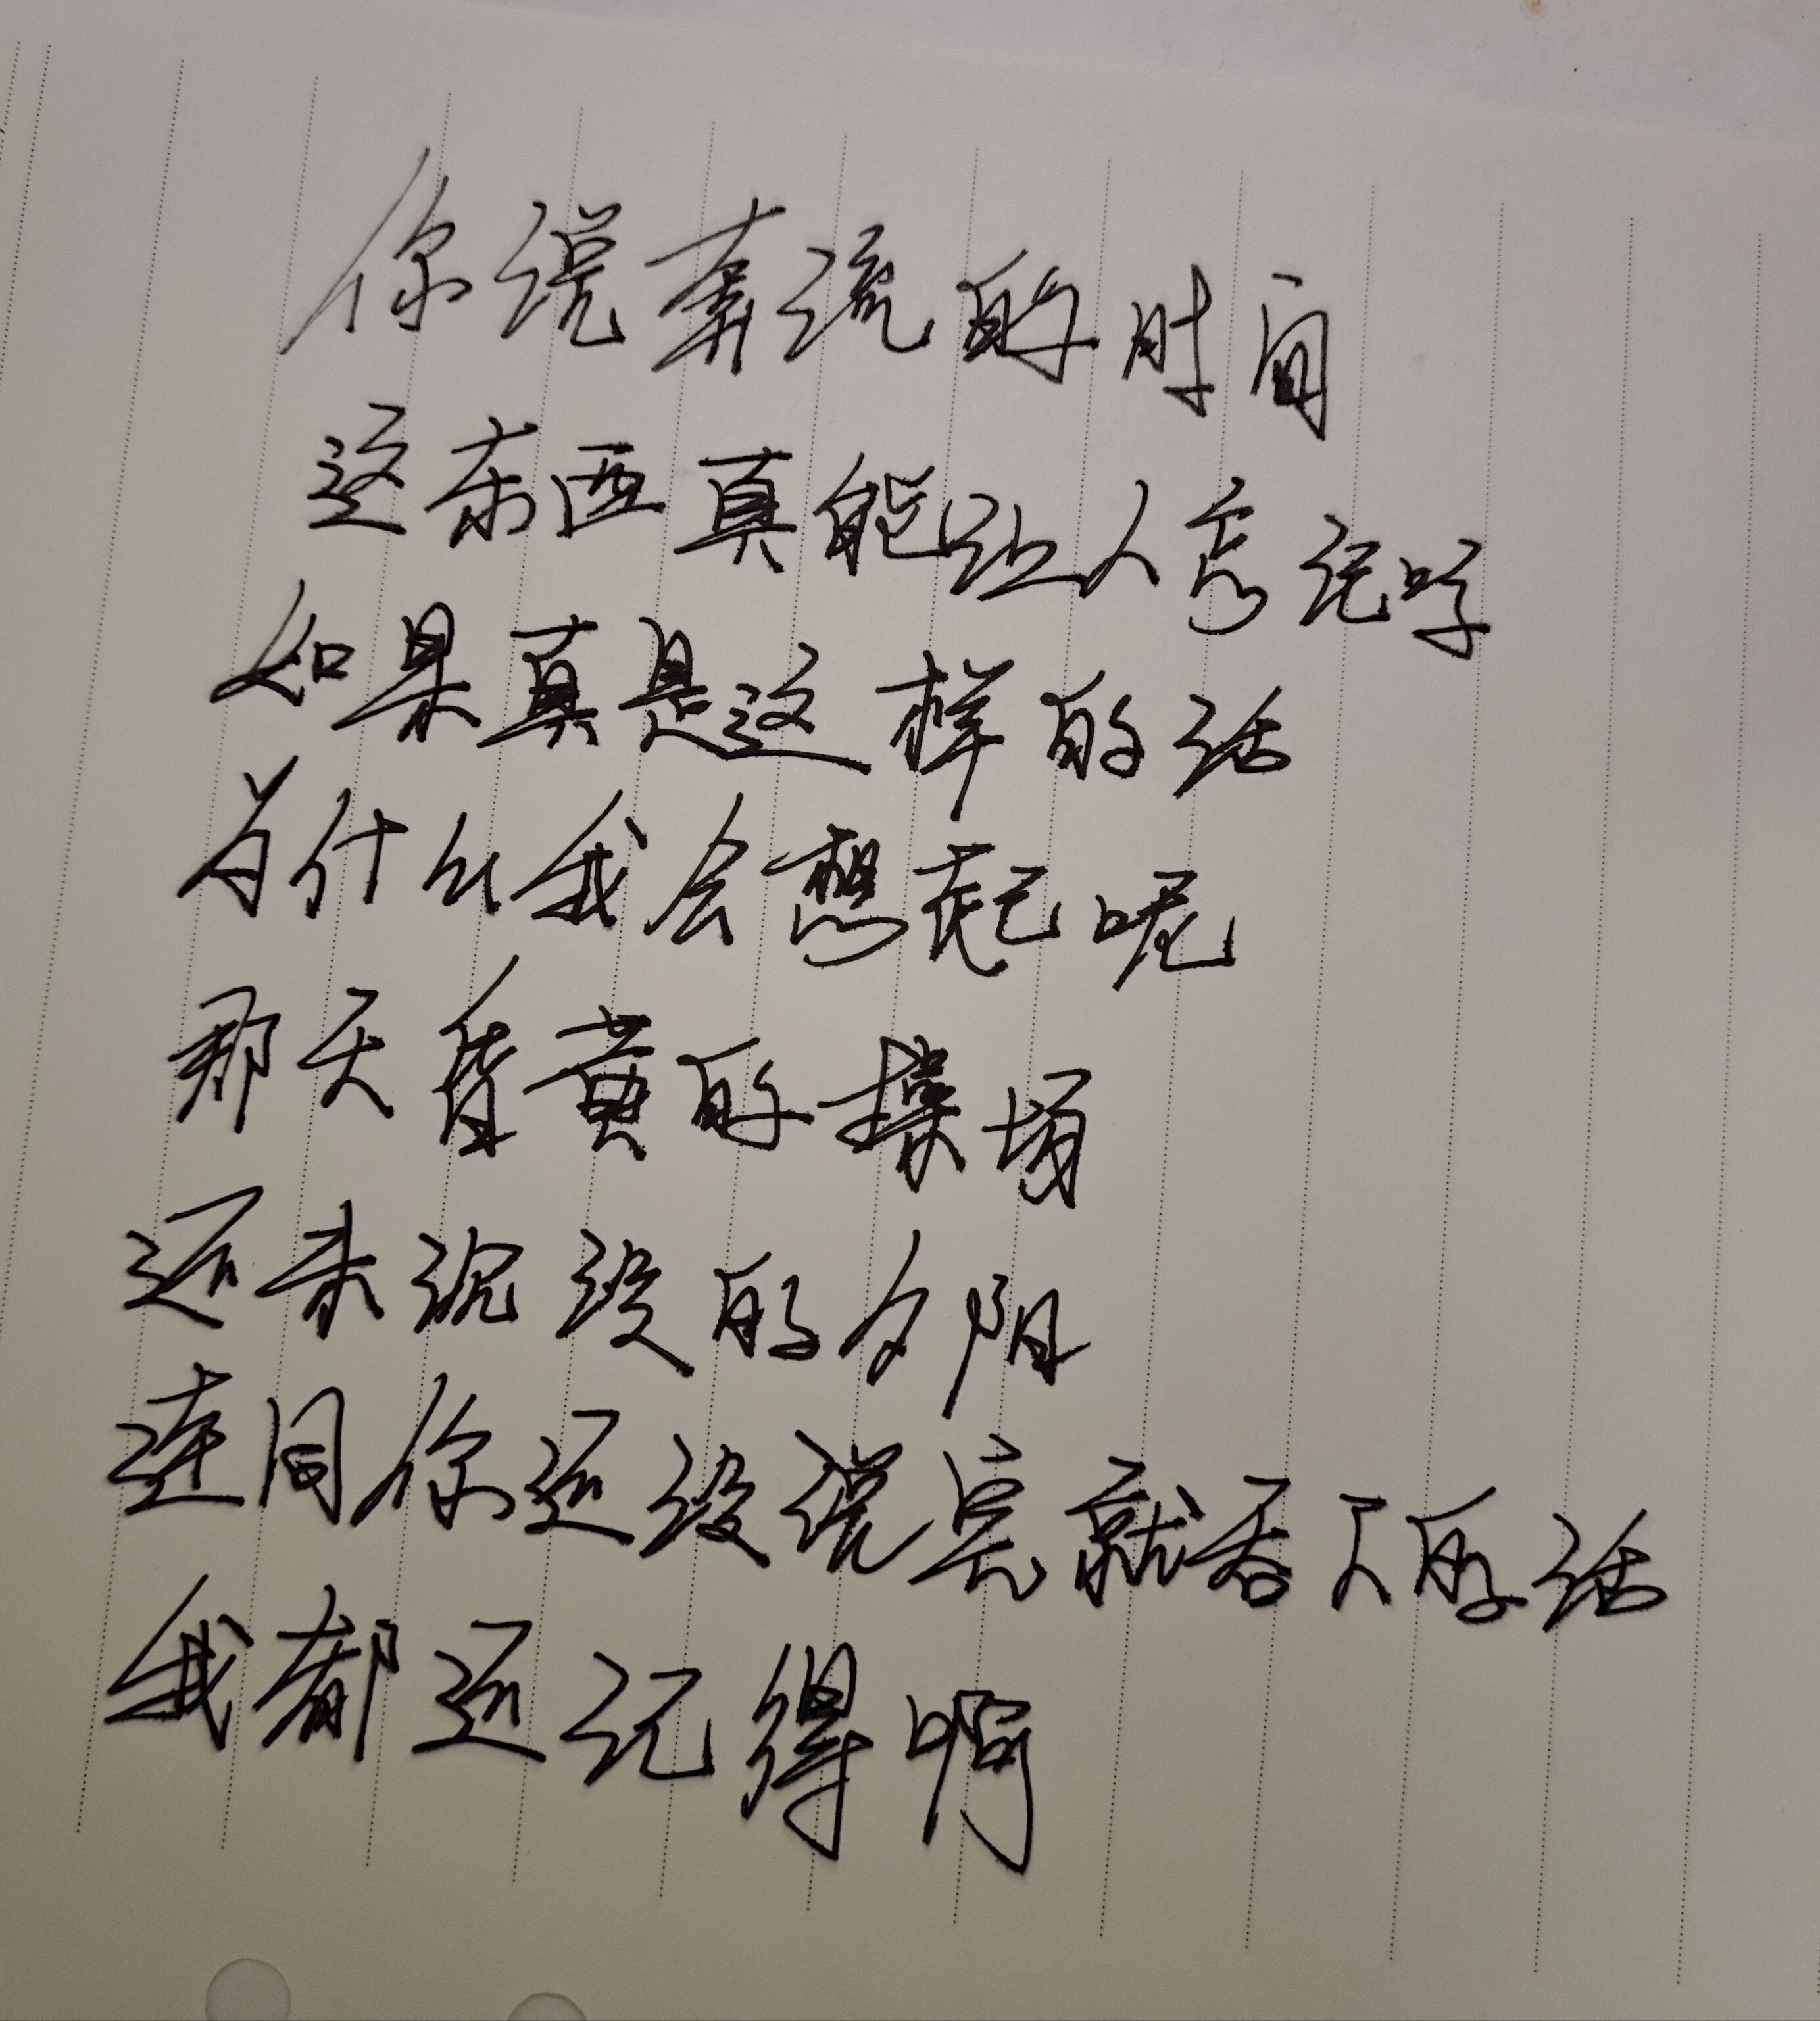 你说奔流的时间
这东西真能让人忘记吗
如果真是这样的话
为什么我会想起呢
那天昏黄的操场
还未沉没的夕阳
连同你还没说完就吞下的话
我都还记得啊